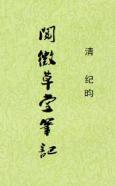 清 纪昀
閱微草堂筆記